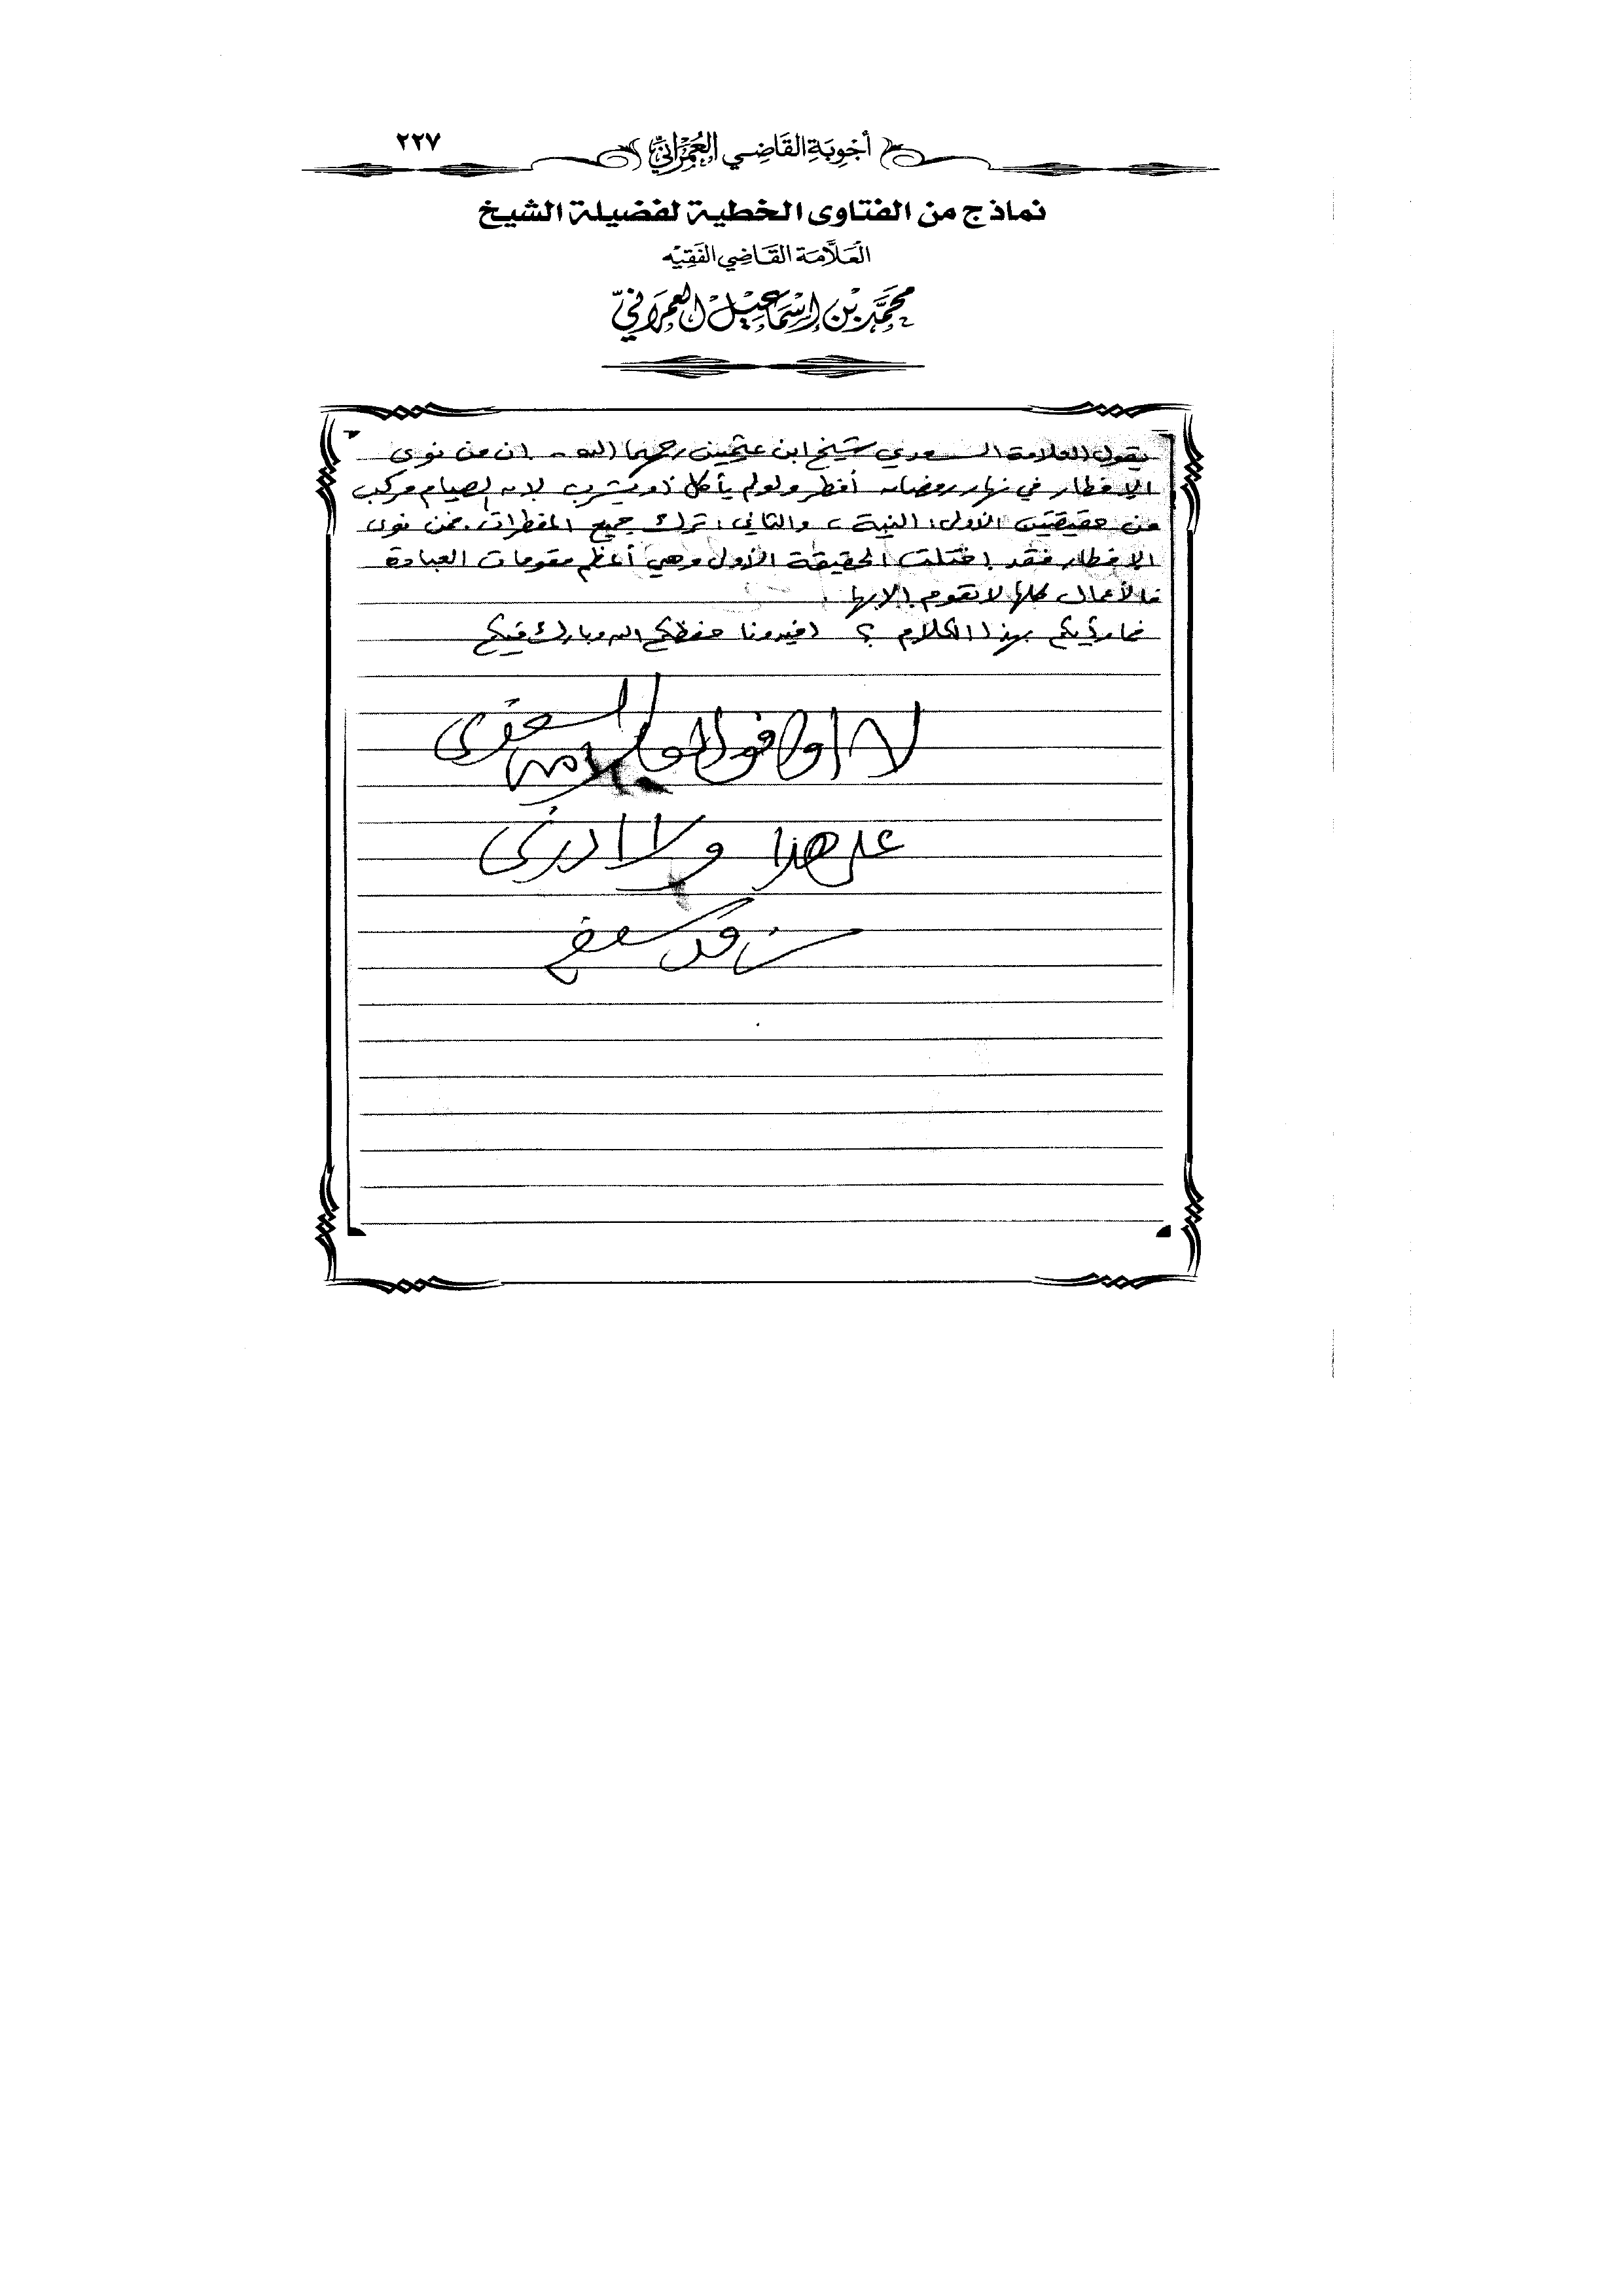 أجوبة القاضي العمراني ٢٢٧
نماذج من الفتاوى الخطية لفضيلة الشيخ
العلامة القاضي الفقيه
محمد بن إسماعيل العمراني
يقول العلامة السعدي شيخ ابن عثيمين رحمهما الله - ان من نوى
الإفطار في نهار رمضان أفطر ولو لم يأكل أو يشرب لان الصيام مركب
من حقيقتين الأولى: النية، والثاني: ترك جميع المفطرات. فمن نوى
الإفطار فقد اختلت الحقيقة الأولى وهي أعظم مقومات العبادة
فالأعمال كلها لا تقوم إلا بها.
فما رأيكم بهذا الكلام؟ افيدونا حفظكم الله وبارك فيكم
لا اوافق العلامة السعدي
على هذا ولا ادري
من قد سبقه